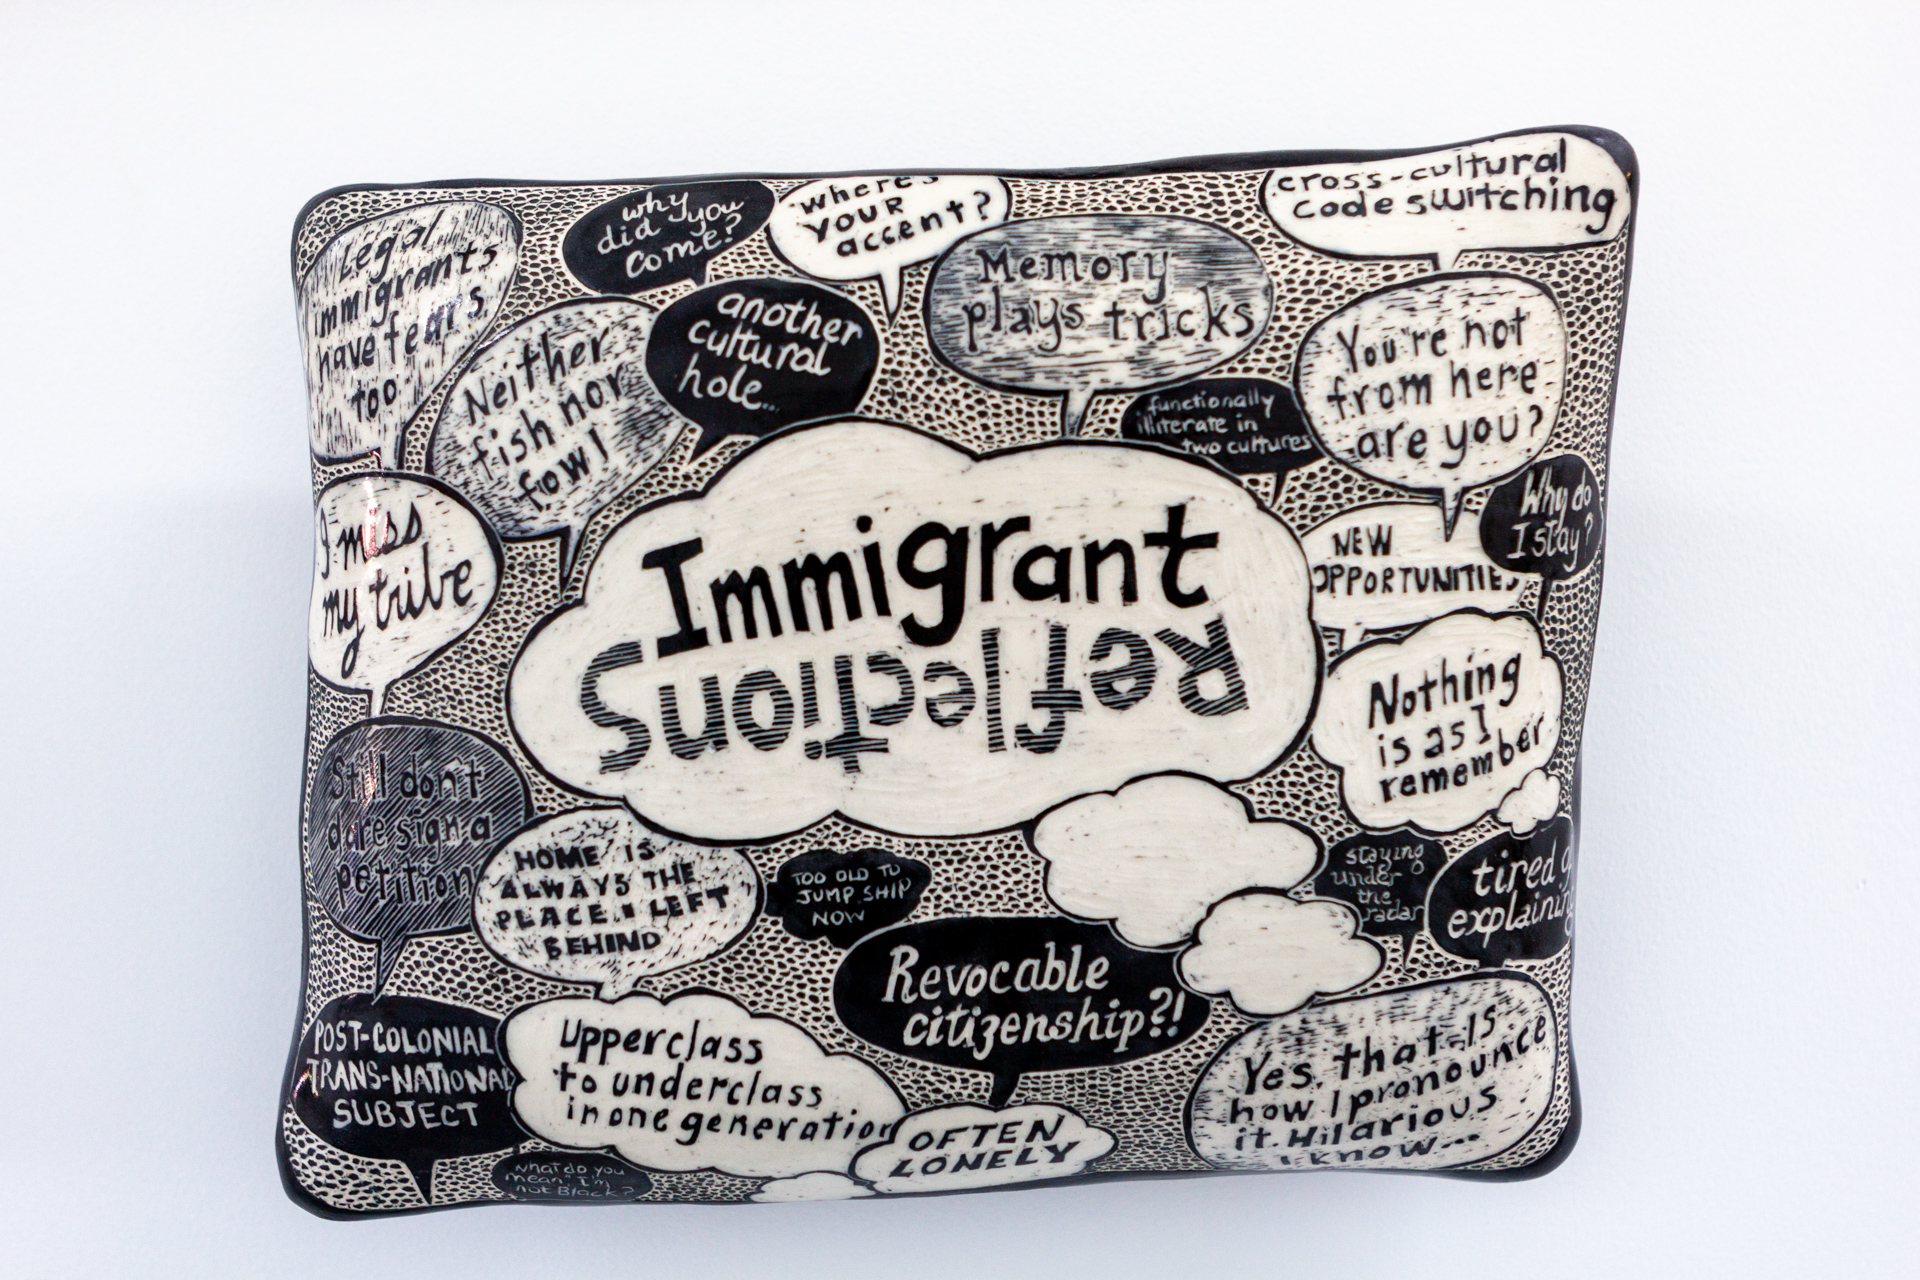 Legal
immigrants
have fears
too
why you
did
come?
where's
YOUR
accent?
cross-cultural
code switching
Memory
plays tricks
another
cultural
hole...
Neither
fish nor
fowl
functionally
illiterate in
two cultures
You're not
from here
are you?
Why do
I stay?
I miss
my tribe
Immigrant
Reflections
NEW
OPPORTUNITIES
Nothing
is as I
remember
Still don't
dare sign a
petition
HOME IS
ALWAYS THE
PLACE I LEFT
BEHIND
TOO OLD TO
JUMP SHIP
NOW
staying
under
the
radar
tired
explaining
Revocable
citizenship?!
POST-COLONIAL
TRANS-NATIONAL
SUBJECT
Upperclass
to underclass
in one generation
OFTEN
LONELY
Yes, that is
how I pronounce
it. Hilarious
I know...
what do you
mean "I'm
not Black?